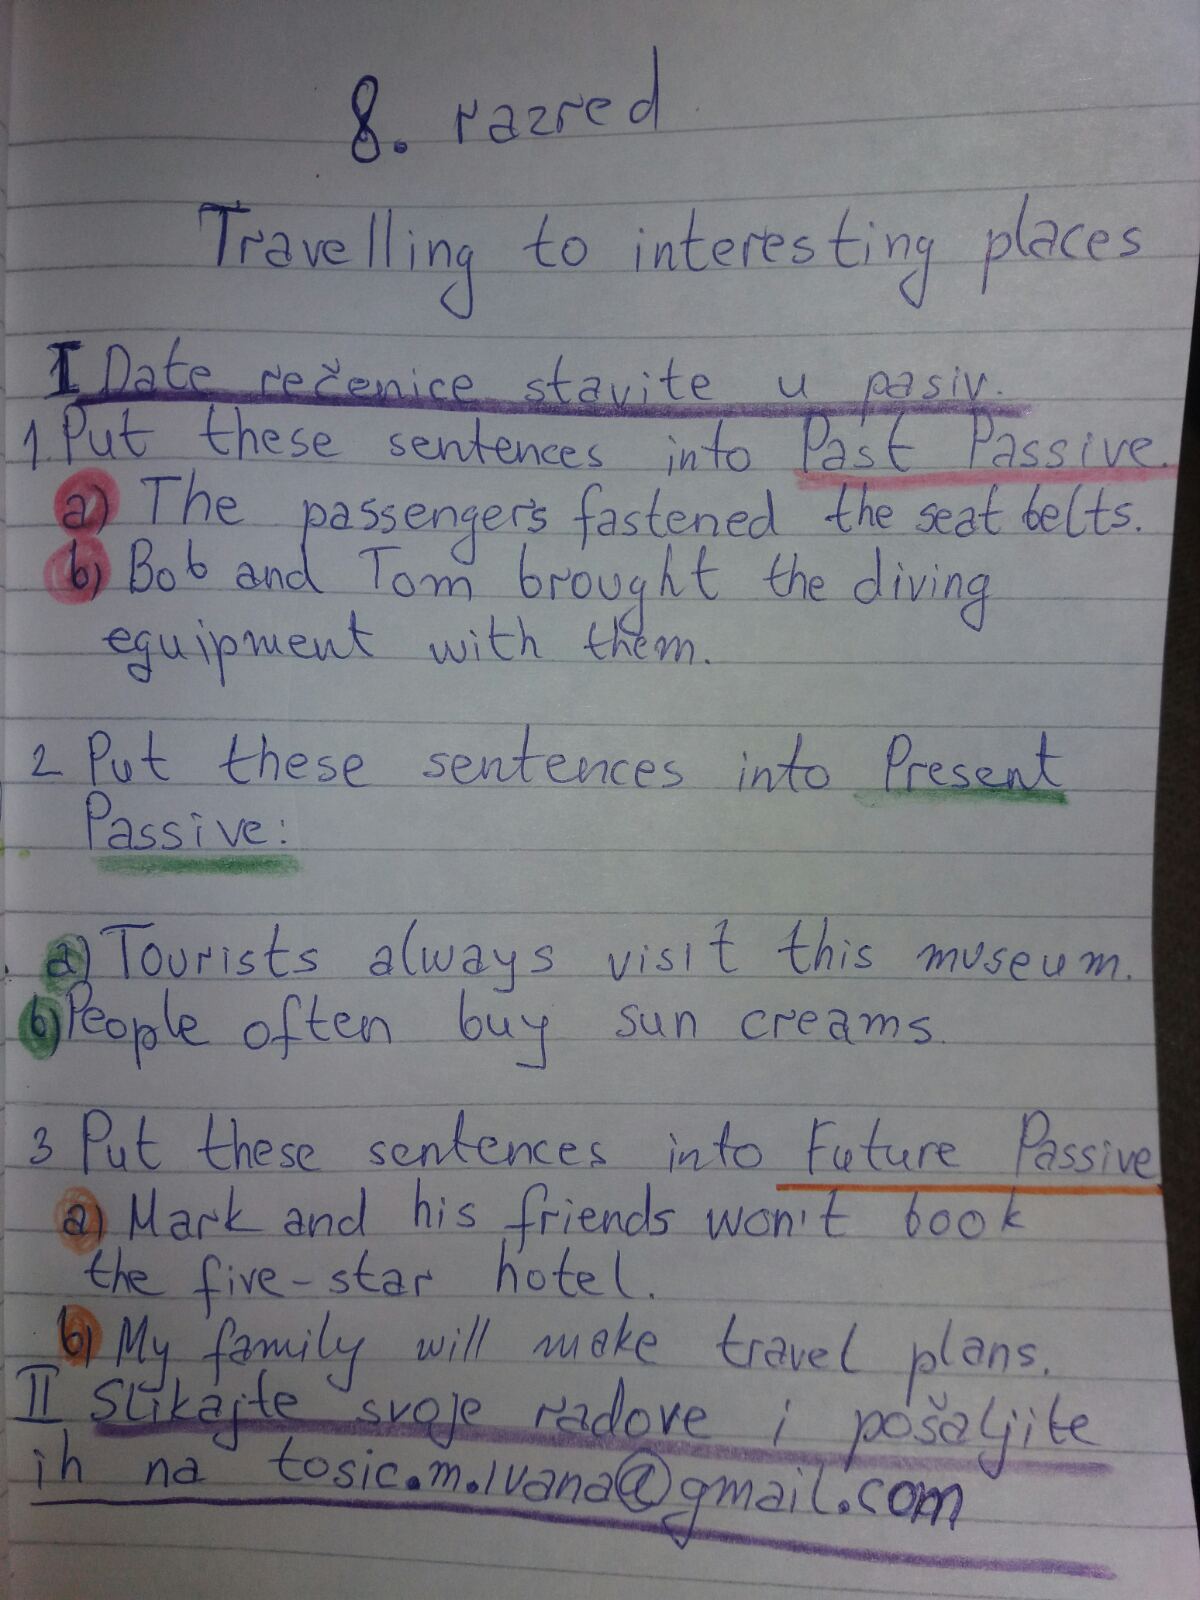 8. razred
Travelling to interesting places
I Date rečenice stavite u pasiv.
1. Put these sentences into Past Passive.
a) The passengers fastened the seat belts.
b) Bob and Tom brought the diving
equipment with them.
2 Put these sentences into Present
Passive:
a) Tourists always visit this museum.
b) People often buy sun creams.
3 Put these sentences into Future Passive
a) Mark and his friends won't book
the five-star hotel.
b) My family will make travel plans.
II Slikajte svoje radove i pošaljite
ih na tosic.m.ivana@gmail.com